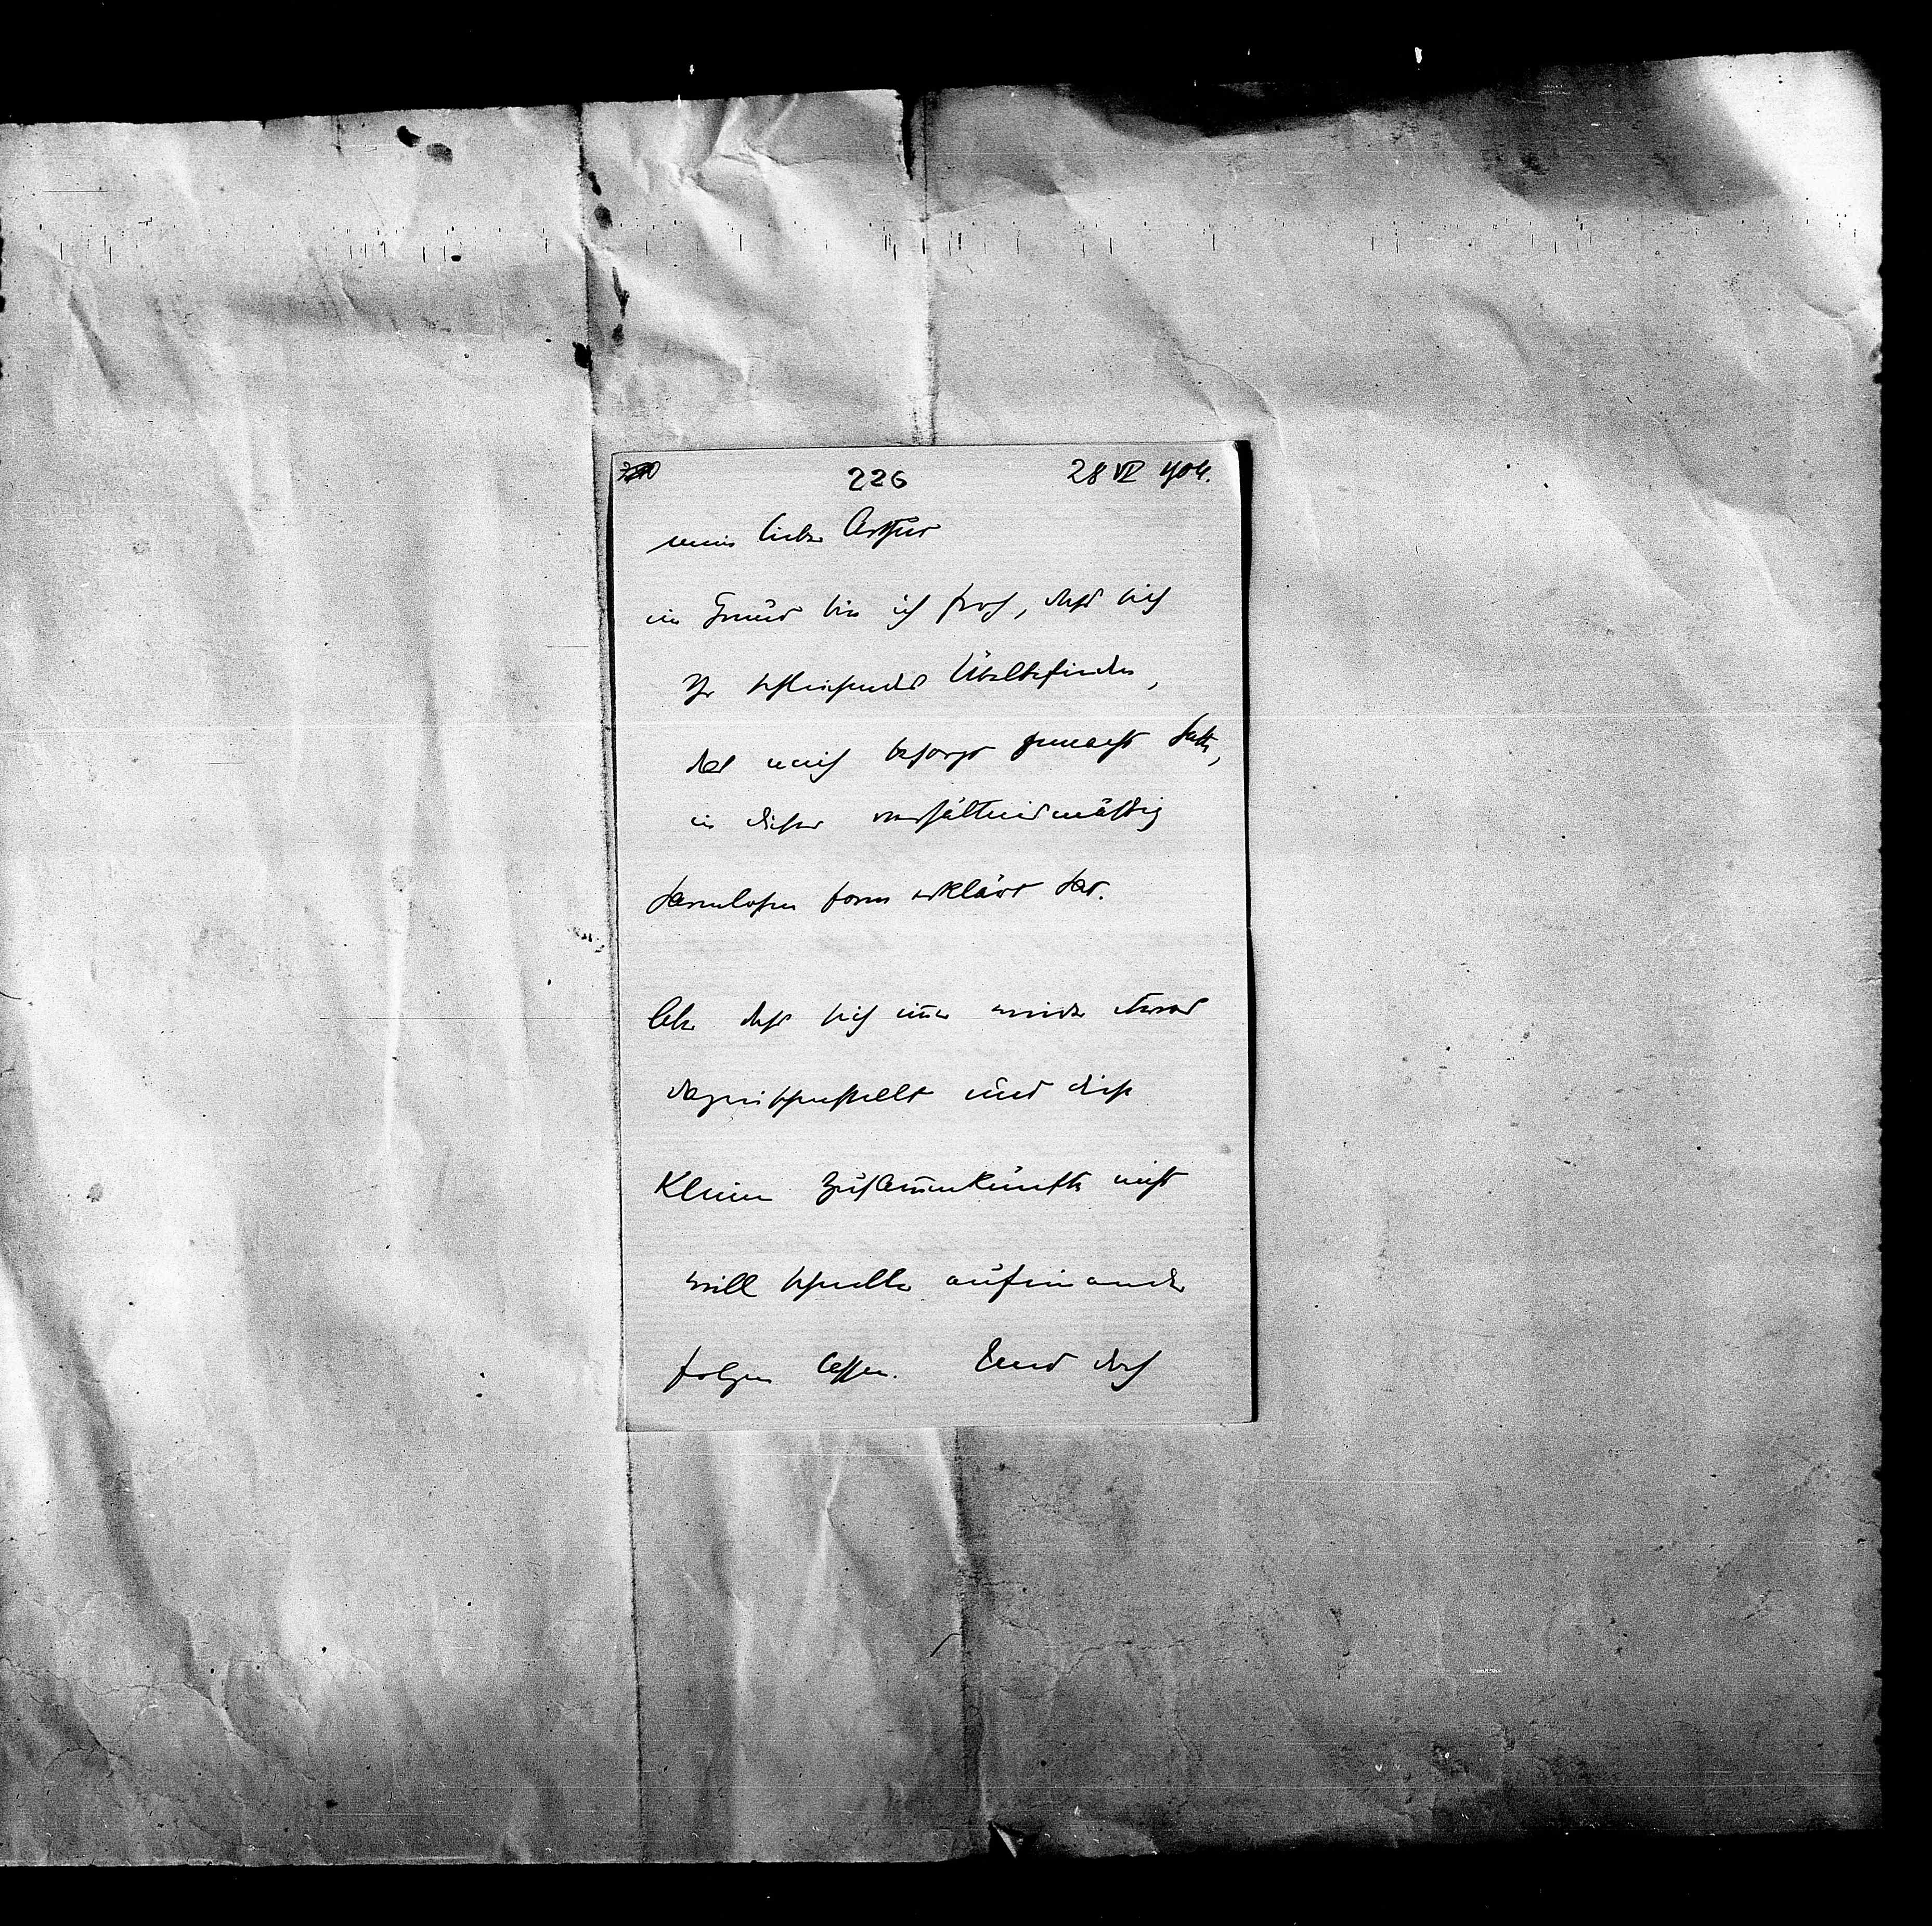 226 28 VI 904.
mein lieber Arthur
im Grund bin ich froh, dass sich
Ihr schleichendes Übelbefinden,
das mich besorgt gemacht hatte,
in dieser verhältnismässig
harmlosen Form erklärt hat.
Aber dass sich im̄er wieder etwas
dazwischenstellt und diese
kleinen Zusam̄enkünfte nicht
will schneller aufeinander
folgen lassen. Und doch